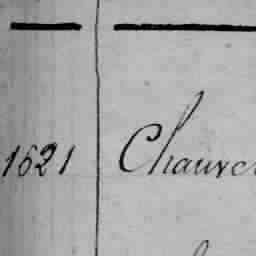 1621 Chauve